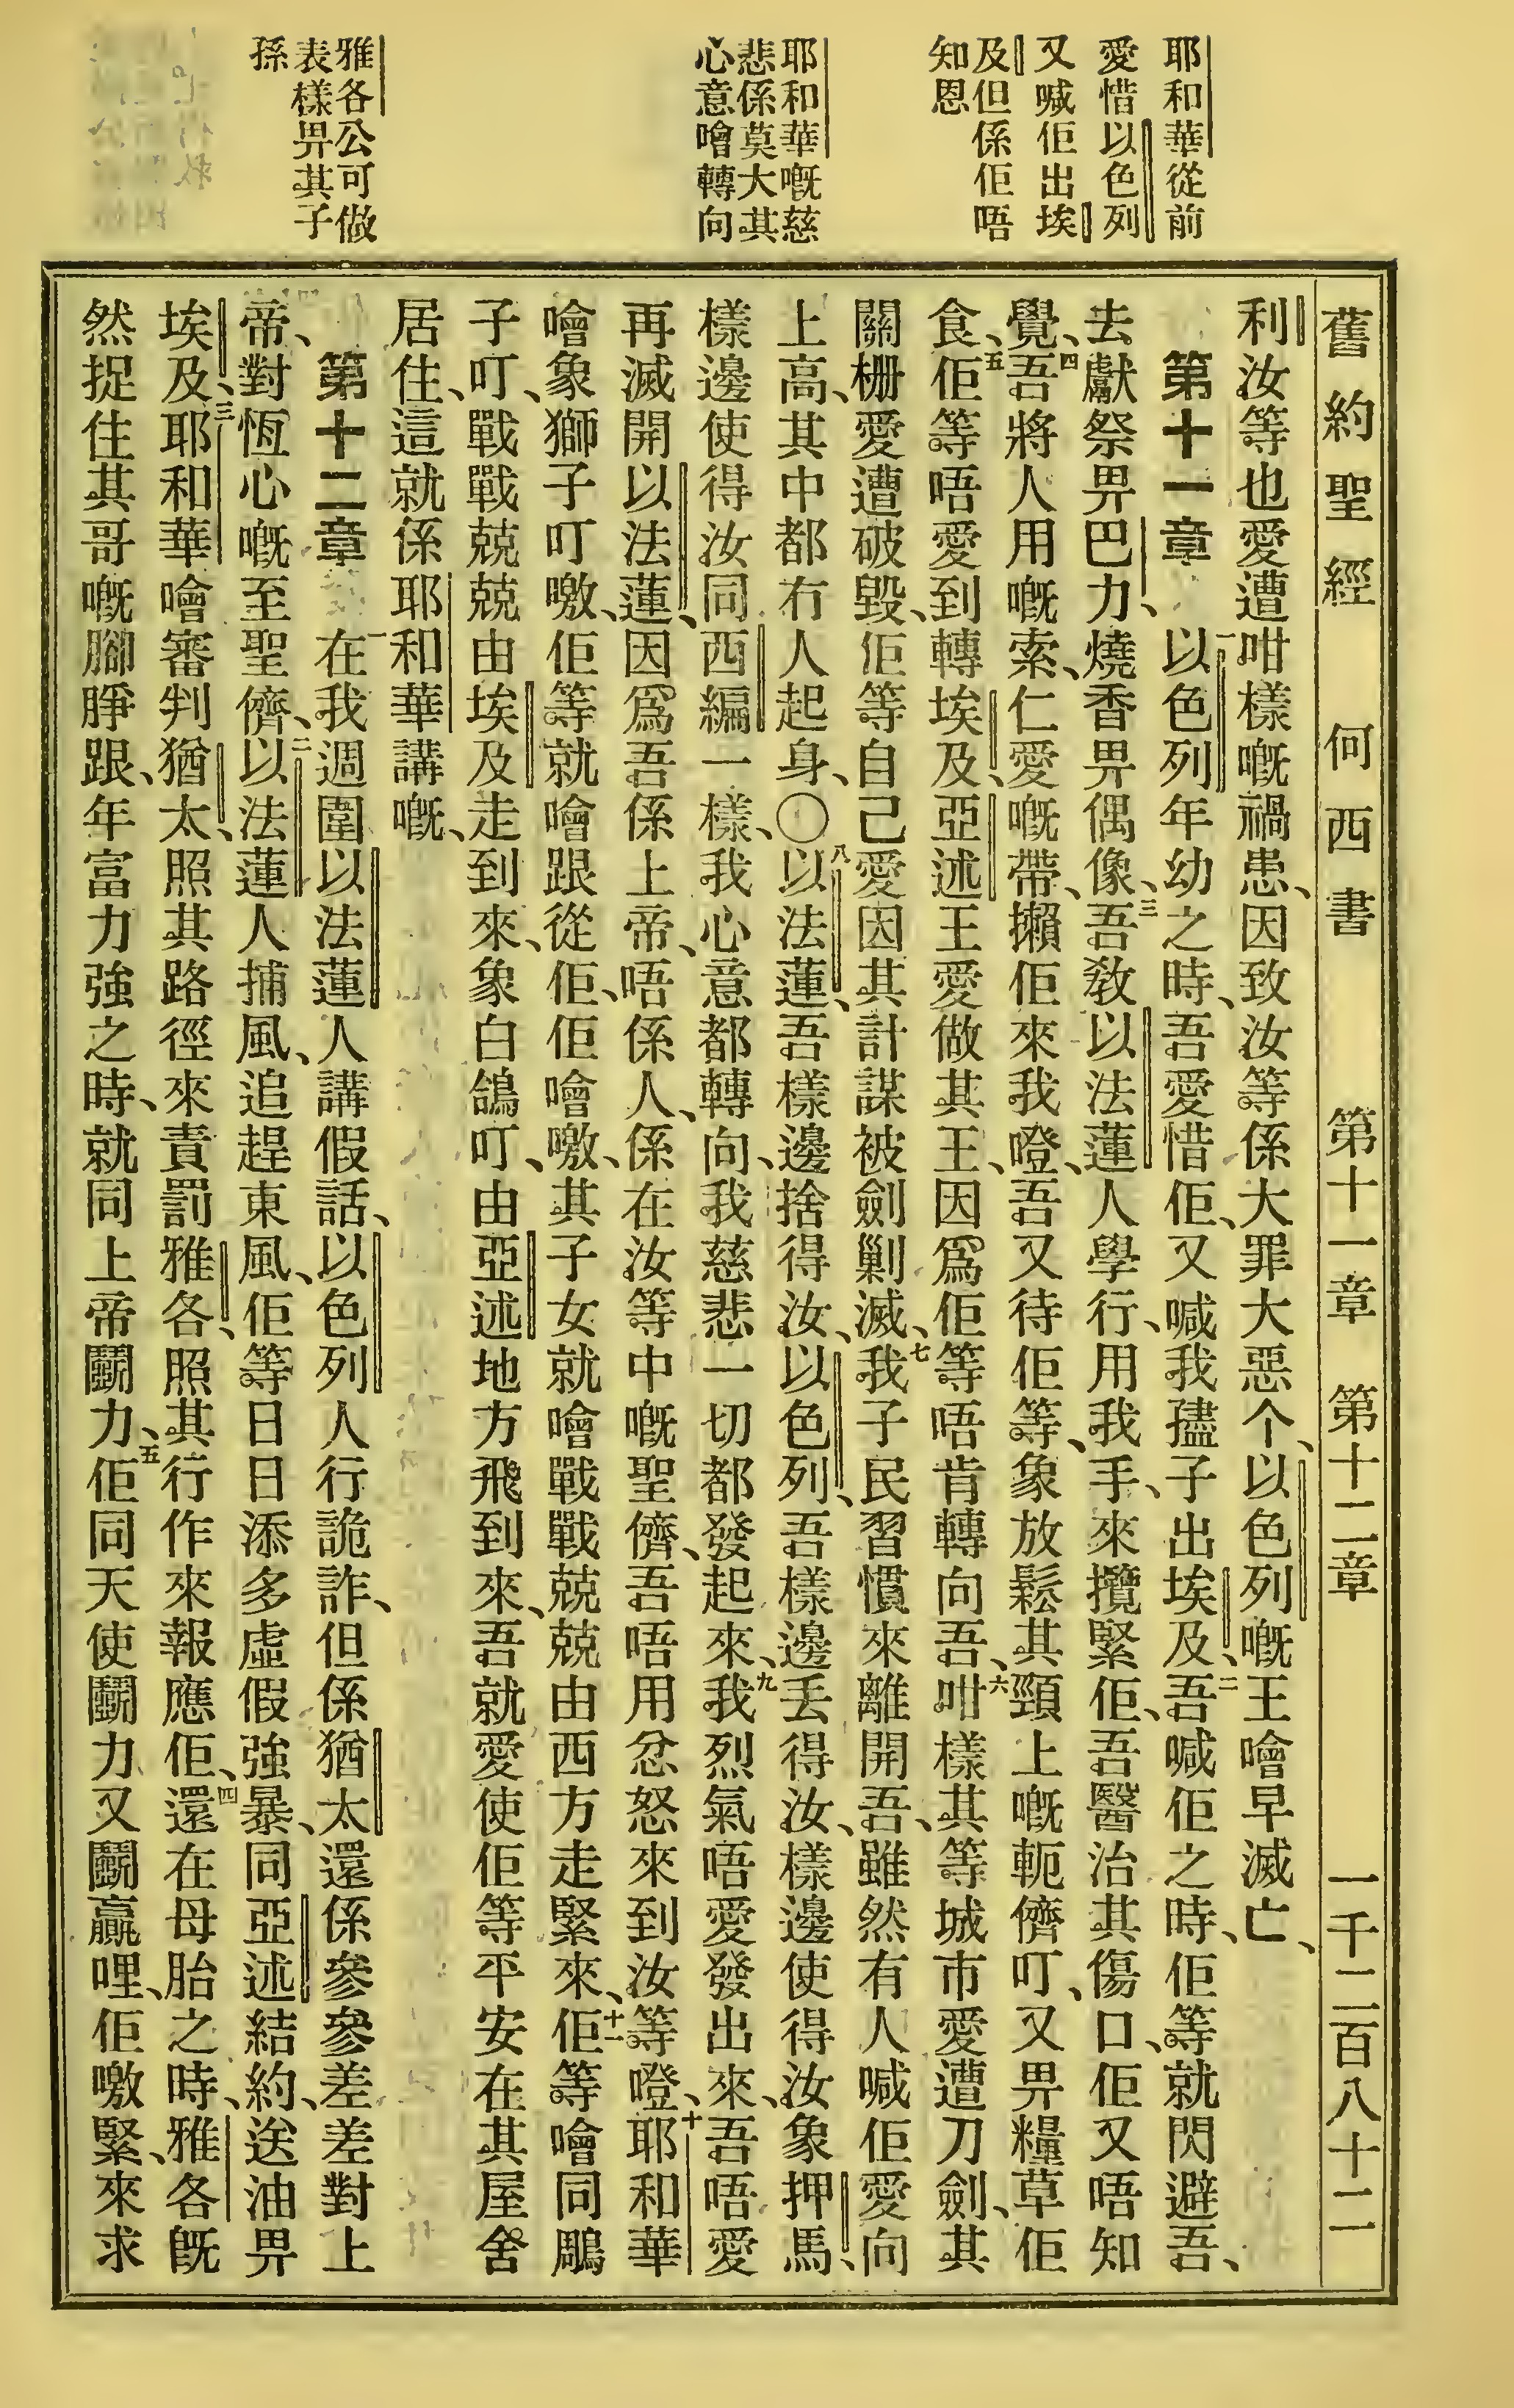 耶和華從前
愛惜以色列
又喊佢出埃
及但係佢唔
知恩
耶和華嘅慈
悲係莫大其
心意噲轉向
雅各公可做
表樣畀其子
孫
舊約聖經 何西書 第十一章 第十二章 一千二百八十二
利汝等也愛遭咁樣嘅禍患、因致汝等係大罪大惡个、以色列嘅王噲早滅亡、
第十一章 一以色列年幼之時、吾愛惜佢、又喊我𠊎子出埃及、二吾喊佢之時、佢等就閃避吾、
去獻祭畀巴力、燒香畀偶像、三吾教以法蓮人學行、用我手、來攬緊佢、吾醫治其傷口、佢又唔知
覺、四吾將人用嘅索、仁愛嘅帶、攋佢來我嶝、吾又待佢等、象放鬆其頸上嘅軛儕叮、又畀糧草佢
食、五佢等唔愛到轉埃及、亞述王愛做其王、因爲佢等唔肯轉向吾、六咁樣其等城市愛遭刀劍、其
關栅愛遭破毀、佢等自己愛因其計謀被劍剿滅、七我子民習慣來離開吾、雖然有人喊佢愛向
上高、其中都冇人起身、〇八以法蓮、吾樣邊捨得汝、以色列、吾樣邊丢得汝、樣邊使得汝象押馬、
樣邊使得汝同西編一樣、我心意都轉向、我慈悲一切都發起來、九我烈氣唔愛發出來、吾唔愛
再滅開以法蓮、因爲吾係上帝、唔係人、係在汝等中嘅聖儕、吾唔用忿怒來到汝等嶝、十耶和華
噲象獅子叮噭、佢等就噲跟從佢、佢噲噭、其子女就噲戰戰兢兢由西方走緊來、十一佢等噲同鵰
子叮、戰戰兢兢由埃及走到來、象白鴿叮、由亞述地方飛到來、吾就愛使佢等平安在其屋舍
居住、這就係耶和華講嘅、
第十二章 一在我週圍以法蓮人講假話、以色列人行詭詐、但係猶太還係參參差差對上
帝、對恆心嘅至聖儕、二以法蓮人捕風、追趕東風、佢等日日添多虛假強暴、同亞述結約、送油畀
埃及、三耶和華噲審判猶太、照其路徑來責罰雅各、照其行作來報應佢、四還在母胎之時、雅各旣
然捉住其哥嘅腳睜跟、年富力強之時、就同上帝鬭力、五佢同天使鬭力又鬭贏哩、佢噭緊、來求